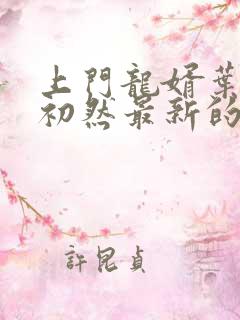 上門龍婿葉
初然最新的
許昆貞